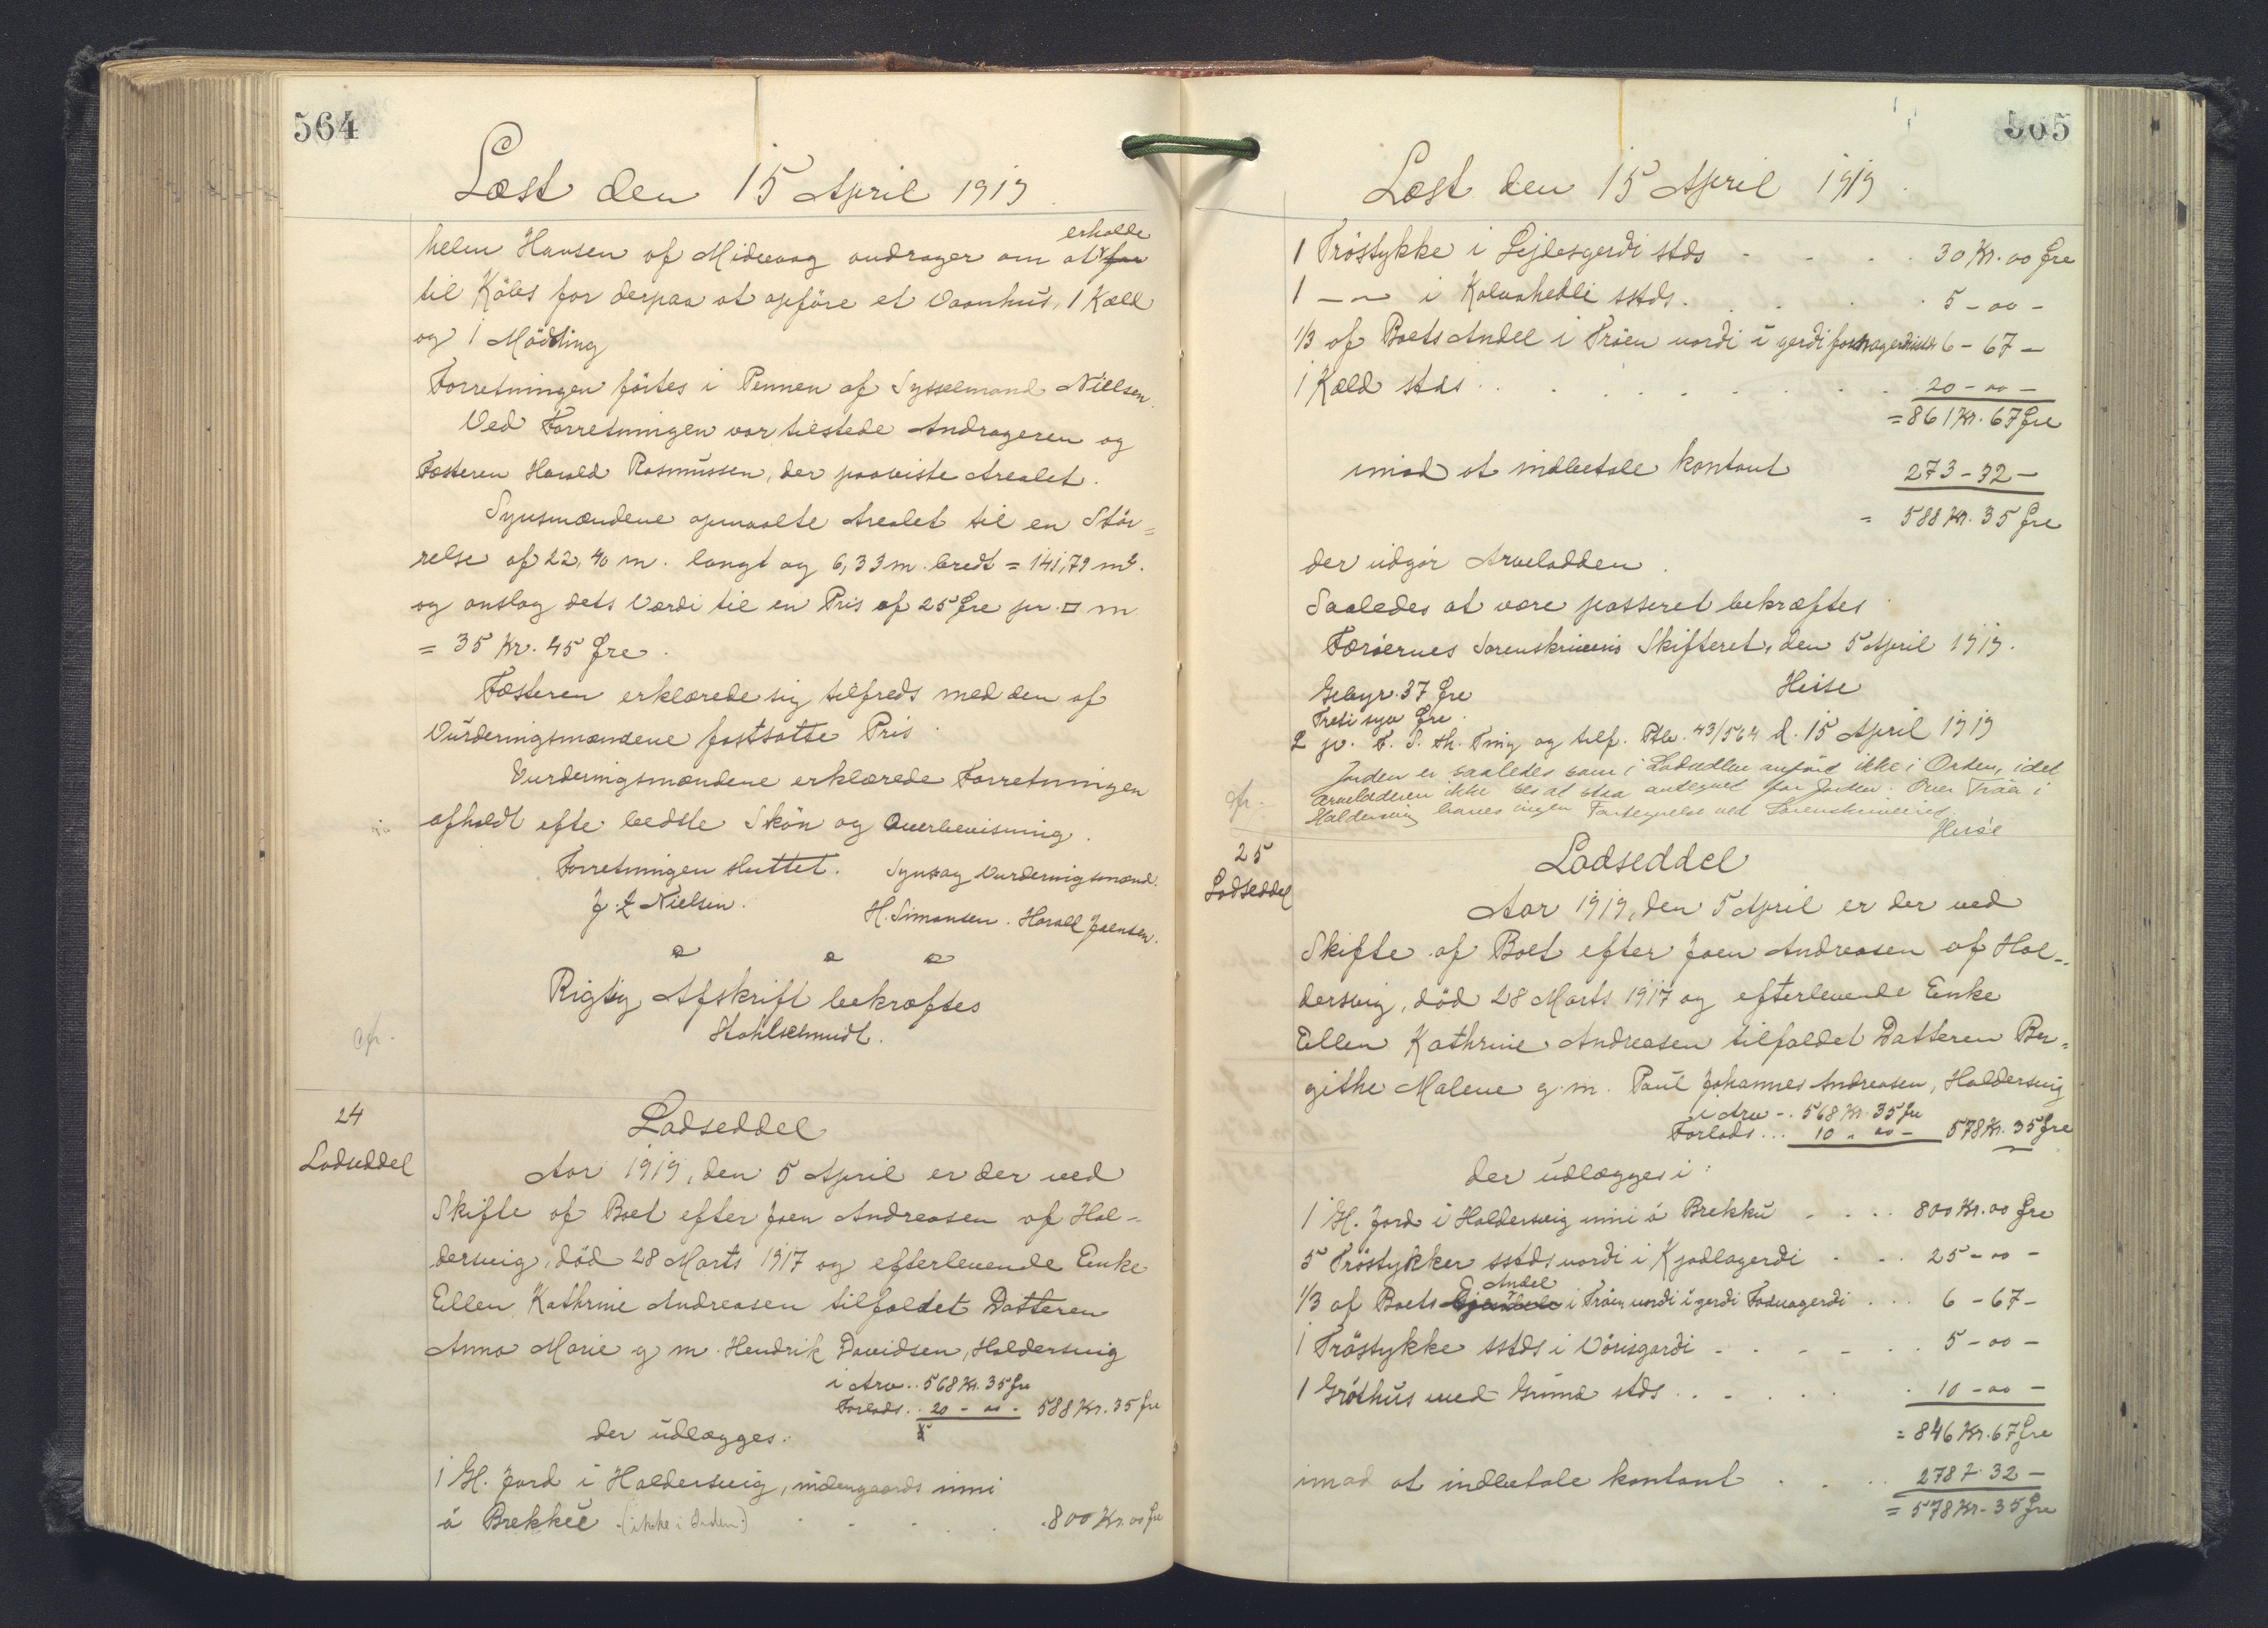 564
Læst den 15 April 1919
helm Hansen af Midvaag andrager om at erholde
til Købs for derpaa at opföre et Vaanhus, 1 Kæld
og 1 Mödding
Forretningen förtes i Pennen af Sysselmand Nielsen.
Ved Forretningen var tilstede Andrageren og
Fæsteren Harald Rasmussen, der paaviste Arealet.
Synsmændene opmaalte Arealet til en Stör=
relse af 22,40 m. langt og 6,33 m. bredt = 141,79 m².
og anslog dets Værdi til en Pris af 25 Øre pr. □ m
= 35 Kr. 45 Øre.
Fæsteren erklærede sig tilfreds med den af
Vurderingsmændene fastsatte Pris.
Vurderingsmændene erklærede Forretningen
afholdt efte bedste Skön og Overbevisning.
Forretningen sluttet. Syns og Vurderingsmænd.
J. Z Nielsen. H. Simonsen. Harall Joensen.
Rigtig Afskrift bekræftes
Stahlschmidt.
24
Lodseddel
Lodseddel
Aar 1919, den 5 April er der ved
Skifte af Boet efter Joen Andreasen af Hal-
dersvig, död 28 Marts 1917 og efterlevende Enke
Ellen Kathrine Andreasen tilfaldet Datteren
Anna Marie g. m. Hendrik Davidsen, Haldersvig
i Arv.. 568 Kr. 35 Øre
Forlods.. 20 - 00 - 588 Kr. 35 Øre
der udlægges.
1 Gl. Jord i Haldersvig, indengaards inni
á Brekku (ikke i Orden) . . . . . 800 Kr. 00 Øre
565
Læst den 15 April 1919.
1 Tröstykke i Lejdesgerdi stds - - . . 30 Kr. 00 Øre
1 -〃- i Kalvahedli sstds. . . . . 5 - 00 -
1/3 af Boets Andel i Tröen nordi i gerdi 6 - 67 -
1 Kæld stds . . . . . . . . 20 - 00 -
= 861 Kr. 67 Øre
imod at indbetale kontant 273 - 32 -
= 588 Kr. 35 Øre
der udgör Arvelodden.
Saaledes at være passeret bekræftes
Færöernes Sorenskriveris Skifteret, den 5 April 1919.
Gebyr. 37 Øre Heise
Treti syv Øre.
L p. F. S. th. Ting og tilf. Ptb. 43/564 d. 15 April 1919
Jorden er saaledes som i Lodsedlen anfört ikke i Orden, idet
Arveladeren ikke ses at staa antegnet for Jorden. Over Tröer i
Haldersvig haves ingen Fortegnelse ved Sorenskriveriet
Heise
25
Lodseddel
Lodseddel
Aar 1919, den 5 April er der ved
Skifte af Boet efter Joen Andreasen af Hal-
dersvig, död 28 Marts 1917 og efterlevende Enke
Ellen Kathrine Andreasen tilfaldet Datteren Ber=
githe Malene g. m. Paul Johannes Andreasen, Haldersvig
i Arv -. 568 Kr. 35 Øre
Forlods ... 10 - 00 - 578 Kr. 35 Øre
der udlægges i:
1 Gl. Jord i Haldersvig inni á Brekku . . . . 800 Kr. 00 Øre
5 Tröstykker sstds nordi i Kjadlagerdi - - . 25 - 00 -
1/3 af Boets Andel i Tröen nordi i gerdi Fodnagerdi . . . 6 - 67 -
1 Tröstykke sstds i Vörisgardi - - - - . . 5 - 00 -
1 Gróthús med Grund stds . . - . . . . 10 - 00 -
= 846 Kr. 67 Øre
imod at indbetale kontant . . . 278 - 32 -
= 578 Kr. 35 Øre